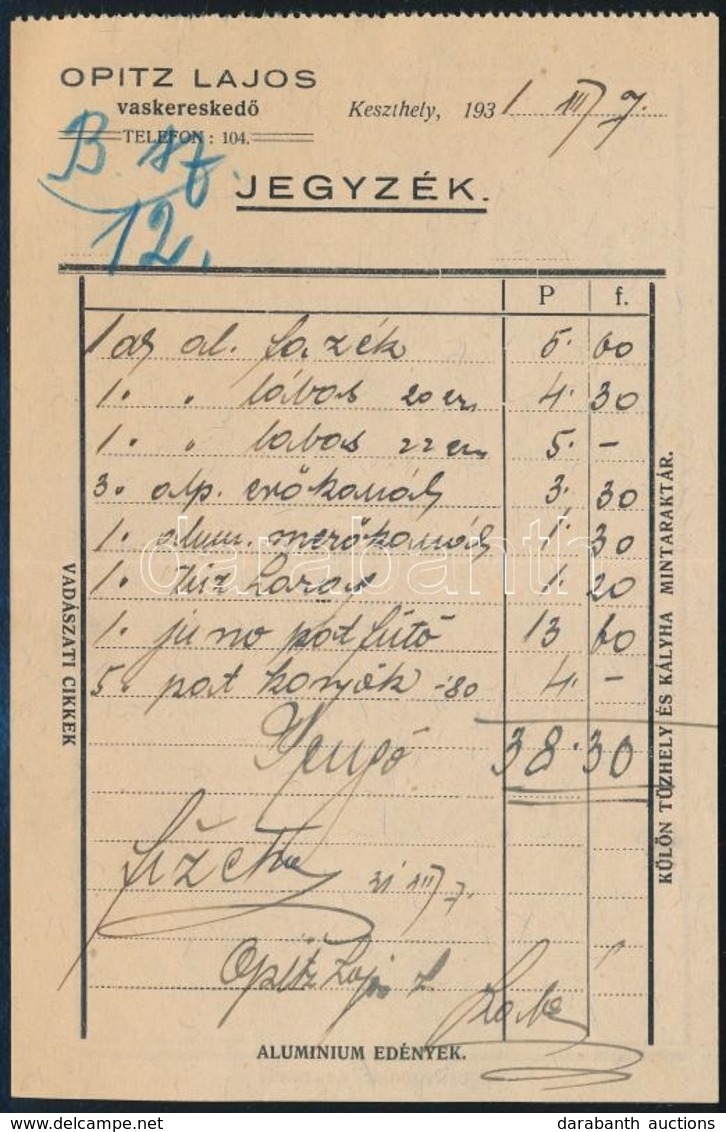 OPITZ LAJOS
vaskereskedő
TELEFON : 104.
Keszthely, 1931 III/7.
B 87.
12.
JEGYZÉK.
P f.
1 al. fazék 5. 60
1. " lábas 20 cm 4. 30
1. " labas 22 cm 5. –
3. alp. evőkanál 3. 30
1. alum. merőkanál 1. 30
1. 1. 20
1. juno pat fütő 13 60
5. pat könyök -80 4. –
Pengő 38.30
Fizetve 31 III/7.
Opitz Lajos
VADÁSZATI CIKKEK
KÜLÖN TŰZHELY ÉS KÁLYHA MINTARAKTÁR.
ALUMINIUM EDÉNYEK.
darabanth
darabanth auctions